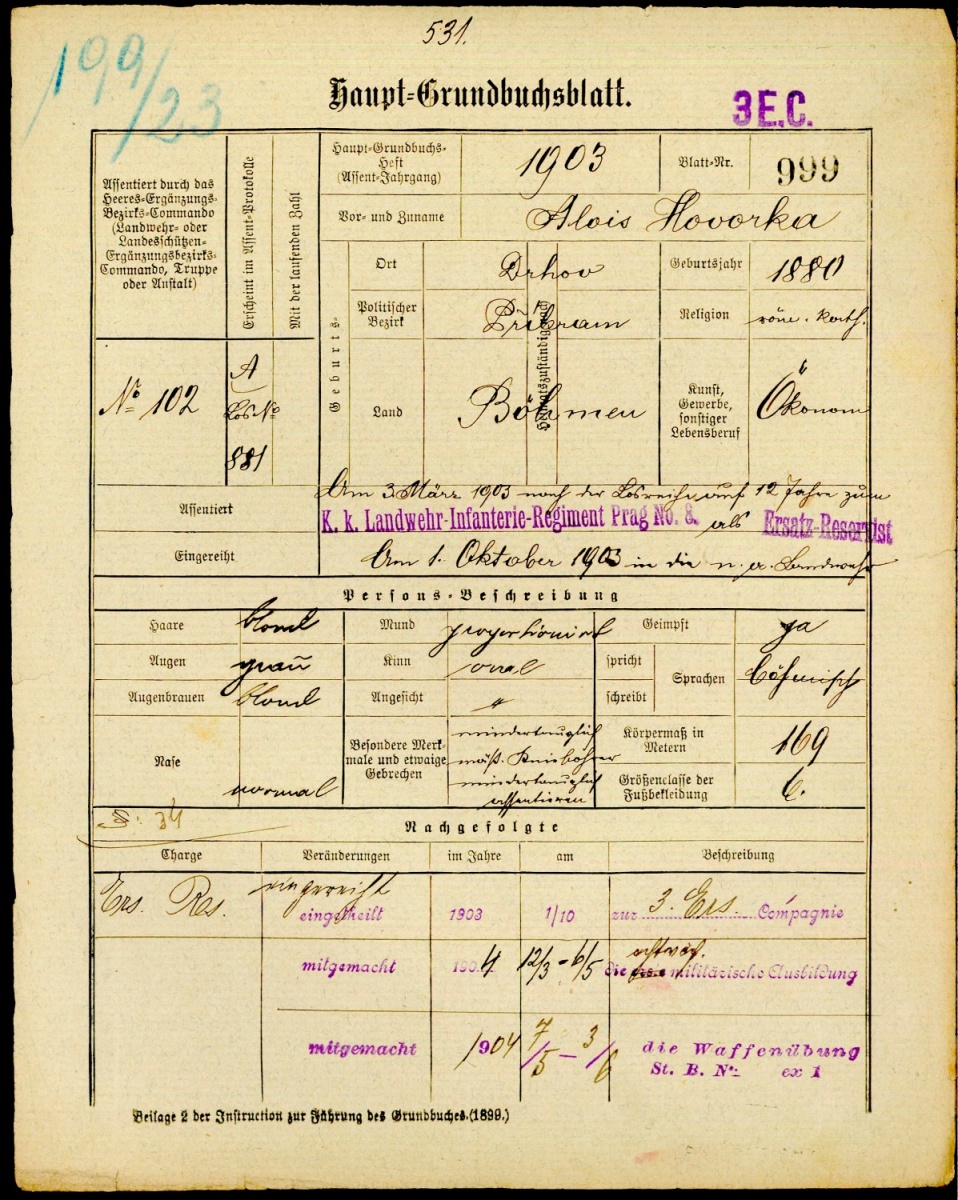 531.
199/23
Haupt-Grundbuchsblatt.
3 E.C.
Assentiert durch das
Heeres-Ergänzungs-
Bezirks-Commando
(Landwehr- oder
Landesschützen-
Ergänzungsbezirks-
Commando, Truppe
oder Anstalt)
Erscheint im Assent-Protokolle
Mit der laufenden Zahl
Haupt-Grundbuchs-
Heft
(Assent-Jahrgang)
1903
Blatt-Nr.
999
Vor- und Zuname
Alois Hovorka
Geburts-
Ort
Drhov
Geburtsjahr
1880
Politischer
Bezirk
Přibram
Heimatszuständig nach
Religion
röm. kath.
No 102
A
Los No
881
Land
Böhmen
Kunst,
Gewerbe,
sonstiger
Lebensberuf
Ökonom
Assentiert
Am 3. März 1903 nach der Losreihe auf 12 Jahre zum
K. k. Landwehr-Infanterie-Regiment Prag No. 8. als Ersatz-Reservist
Eingereiht
Am 1. Oktober 1903 in die n. a. Landwehr
Persons-Beschreibung
Haare
blond
Mund
proportioniert
Geimpft
ja
Augen
grau
Kinn
oval
spricht
schreibt
Sprachen
böhmisch
Augenbrauen
blond
Angesicht
"
Nase
normal
Besondere Merk-
male und etwaige
Gebrechen
mindertauglich
mäß. Kniebohrer
mindertauglich
assentieren
Körpermaß in
Metern
169
Größenclasse der
Fußbekleidung
6.
§: 34
Nachgefolgte
Charge
Veränderungen
im Jahre
am
Beschreibung
Ers. Res.
eingereiht
eingetheilt
1903
1/10
zur 3. Ers. Compagnie
mitgemacht
1904
12/3 - 6/5
achtwöch.
die militärische Ausbildung
mitgemacht
1904
7/5 - 3/6
die Waffenübung
St. B. No: ex 1
Beilage 2 der Instruction zur Führung des Grundbuches. (1899.)